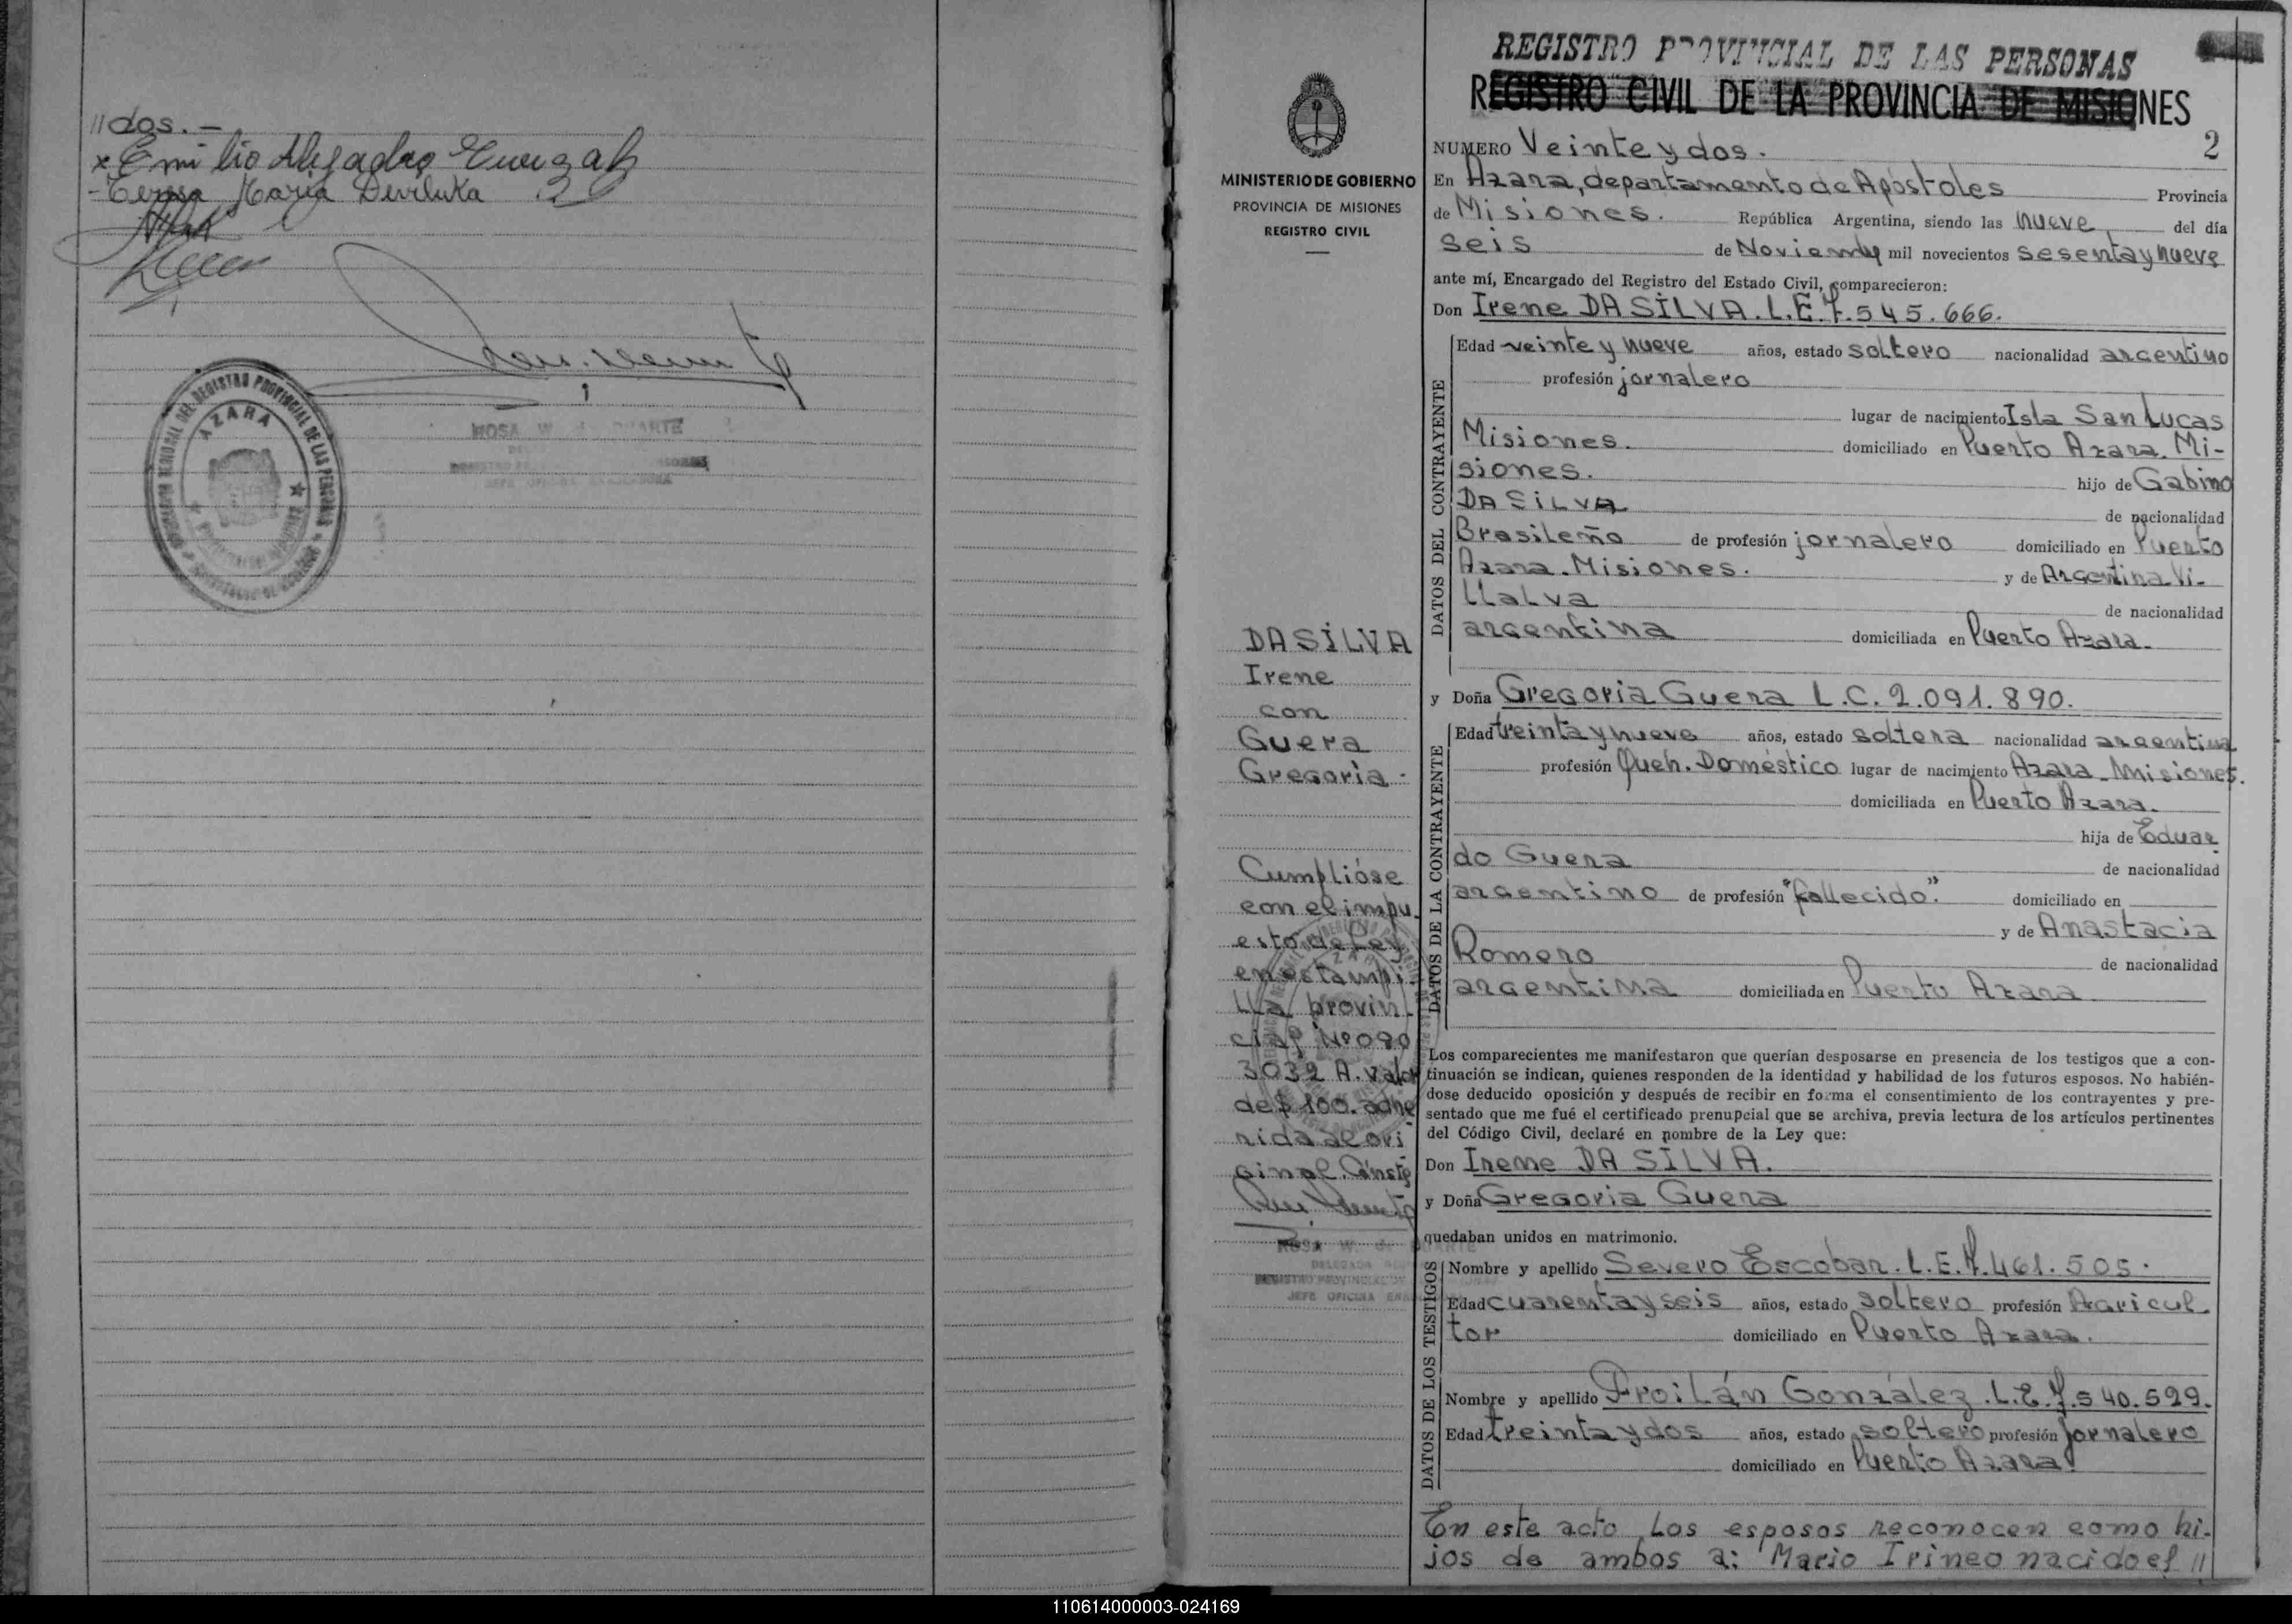 //dos.-
x Emilio Alejadro
- Teresa Maria Deviluka
ROSA W. de DUARTE
DELEGACION REGIONAL DEL REGISTRO PROVINCIAL DE LAS PERSONAS
AZARA
REGISTRO PROVINCIAL DE LAS PERSONAS
REGISTRO CIVIL DE LA PROVINCIA DE MISIONES
2
MINISTERIO DE GOBIERNO
PROVINCIA DE MISIONES
REGISTRO CIVIL
NUMERO Veinte y dos.
En Azara, departamento de Apóstoles Provincia
de Misiones. República Argentina, siendo las nueve, del día
seis de Noviembre mil novecientos sesenta y nueve
ante mí, Encargado del Registro del Estado Civil, comparecieron:
Don Irene DA SILVA. L.E. 7.545.666.
DATOS DEL CONTRAYENTE
Edad veinte y nueve años, estado soltero nacionalidad argentino
profesión jornalero
lugar de nacimiento Isla San Lucas
Misiones. domiciliado en Puerto Azara. Mi-
siones. hijo de Gabino
DA SILVA de nacionalidad
Brasileño de profesión jornalero domiciliado en Puerto
Azara. Misiones. y de Argentina Vi-
llalva de nacionalidad
argentina domiciliada en Puerto Azara.
DA SILVA
Irene
con
Guera
Gregoria.
y Doña Gregoria Guera L.C. 2.091.890.
DATOS DE LA CONTRAYENTE
Edad treinta y nueve años, estado soltera nacionalidad argentina
profesión Queh. Doméstico lugar de nacimiento Azara. Misiones.
domiciliada en Puerto Azara.
hija de Eduar
do Guera de nacionalidad
argentino de profesión "fallecido." domiciliado en
y de Anastacia
Romero de nacionalidad
argentina domiciliada en Puerto Azara.
Cumplióse
con el impu
esto de Ley
en estampi
lla provin-
cial Nº 090
3032 A. valor
de $ 100. adhe
rida al ori
ginal. Conste
ROSA W. de DUARTE
DELEGADA
REGISTRO PROVINCIAL
JEFE OFICINA
Los comparecientes me manifestaron que querían desposarse en presencia de los testigos que a con-
tinuación se indican, quienes responden de la identidad y habilidad de los futuros esposos. No habién-
dose deducido oposición y después de recibir en forma el consentimiento de los contrayentes y pre-
sentado que me fué el certificado prenupcial que se archiva, previa lectura de los artículos pertinentes
del Código Civil, declaré en nombre de la Ley que:
Don Irene DA SILVA.
y Doña Gregoria Guera
quedaban unidos en matrimonio.
DATOS DE LOS TESTIGOS
Nombre y apellido Severo Escobar. L.E. 7.461.505.
Edad cuarenta y seis años, estado soltero profesión Agricul-
tor domiciliado en Puerto Azara.
Nombre y apellido Froilán González. L.E. 7.540.529.
Edad treinta y dos años, estado soltero profesión jornalero
domiciliado en Puerto Azara.
En este acto los esposos reconocen como hi-
jos de ambos a: Mario Irineo nacido el //
110614000003-024169